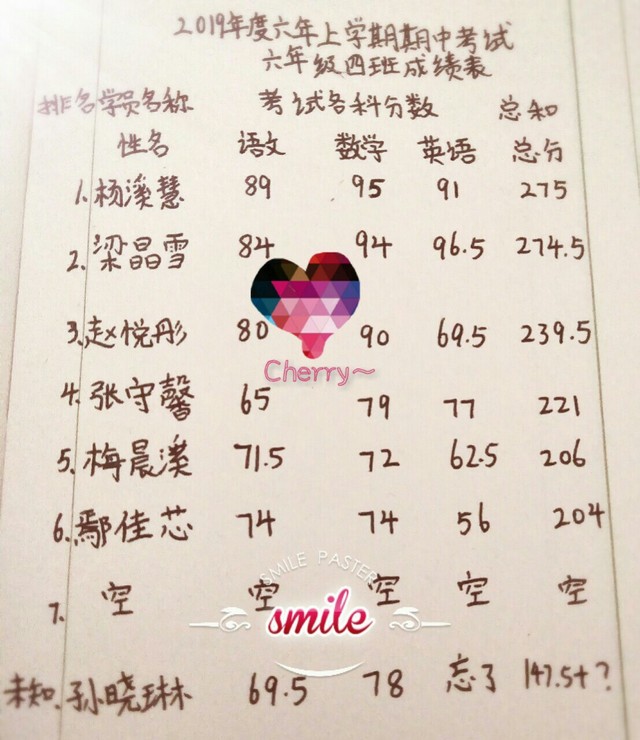 2019年度六年上学期期中考试
六年级四班成绩表
排名学员名称 考试各科分数 总和
性名 语文 数学 英语 总分
1.杨溪慧 89 95 91 275
2.梁晶雪 84 94 96.5 274.5
3.赵悦彤 80 90 69.5 239.5
Cherry~
4.张守馨 65 79 77 221
5.梅晨溪 71.5 72 62.5 206
6.鄢佳芯 74 74 56 204
SMILE PASTER
7. 空 空 空 空 空
smile
未知.孙晓琳 69.5 78 忘了 147.5+?